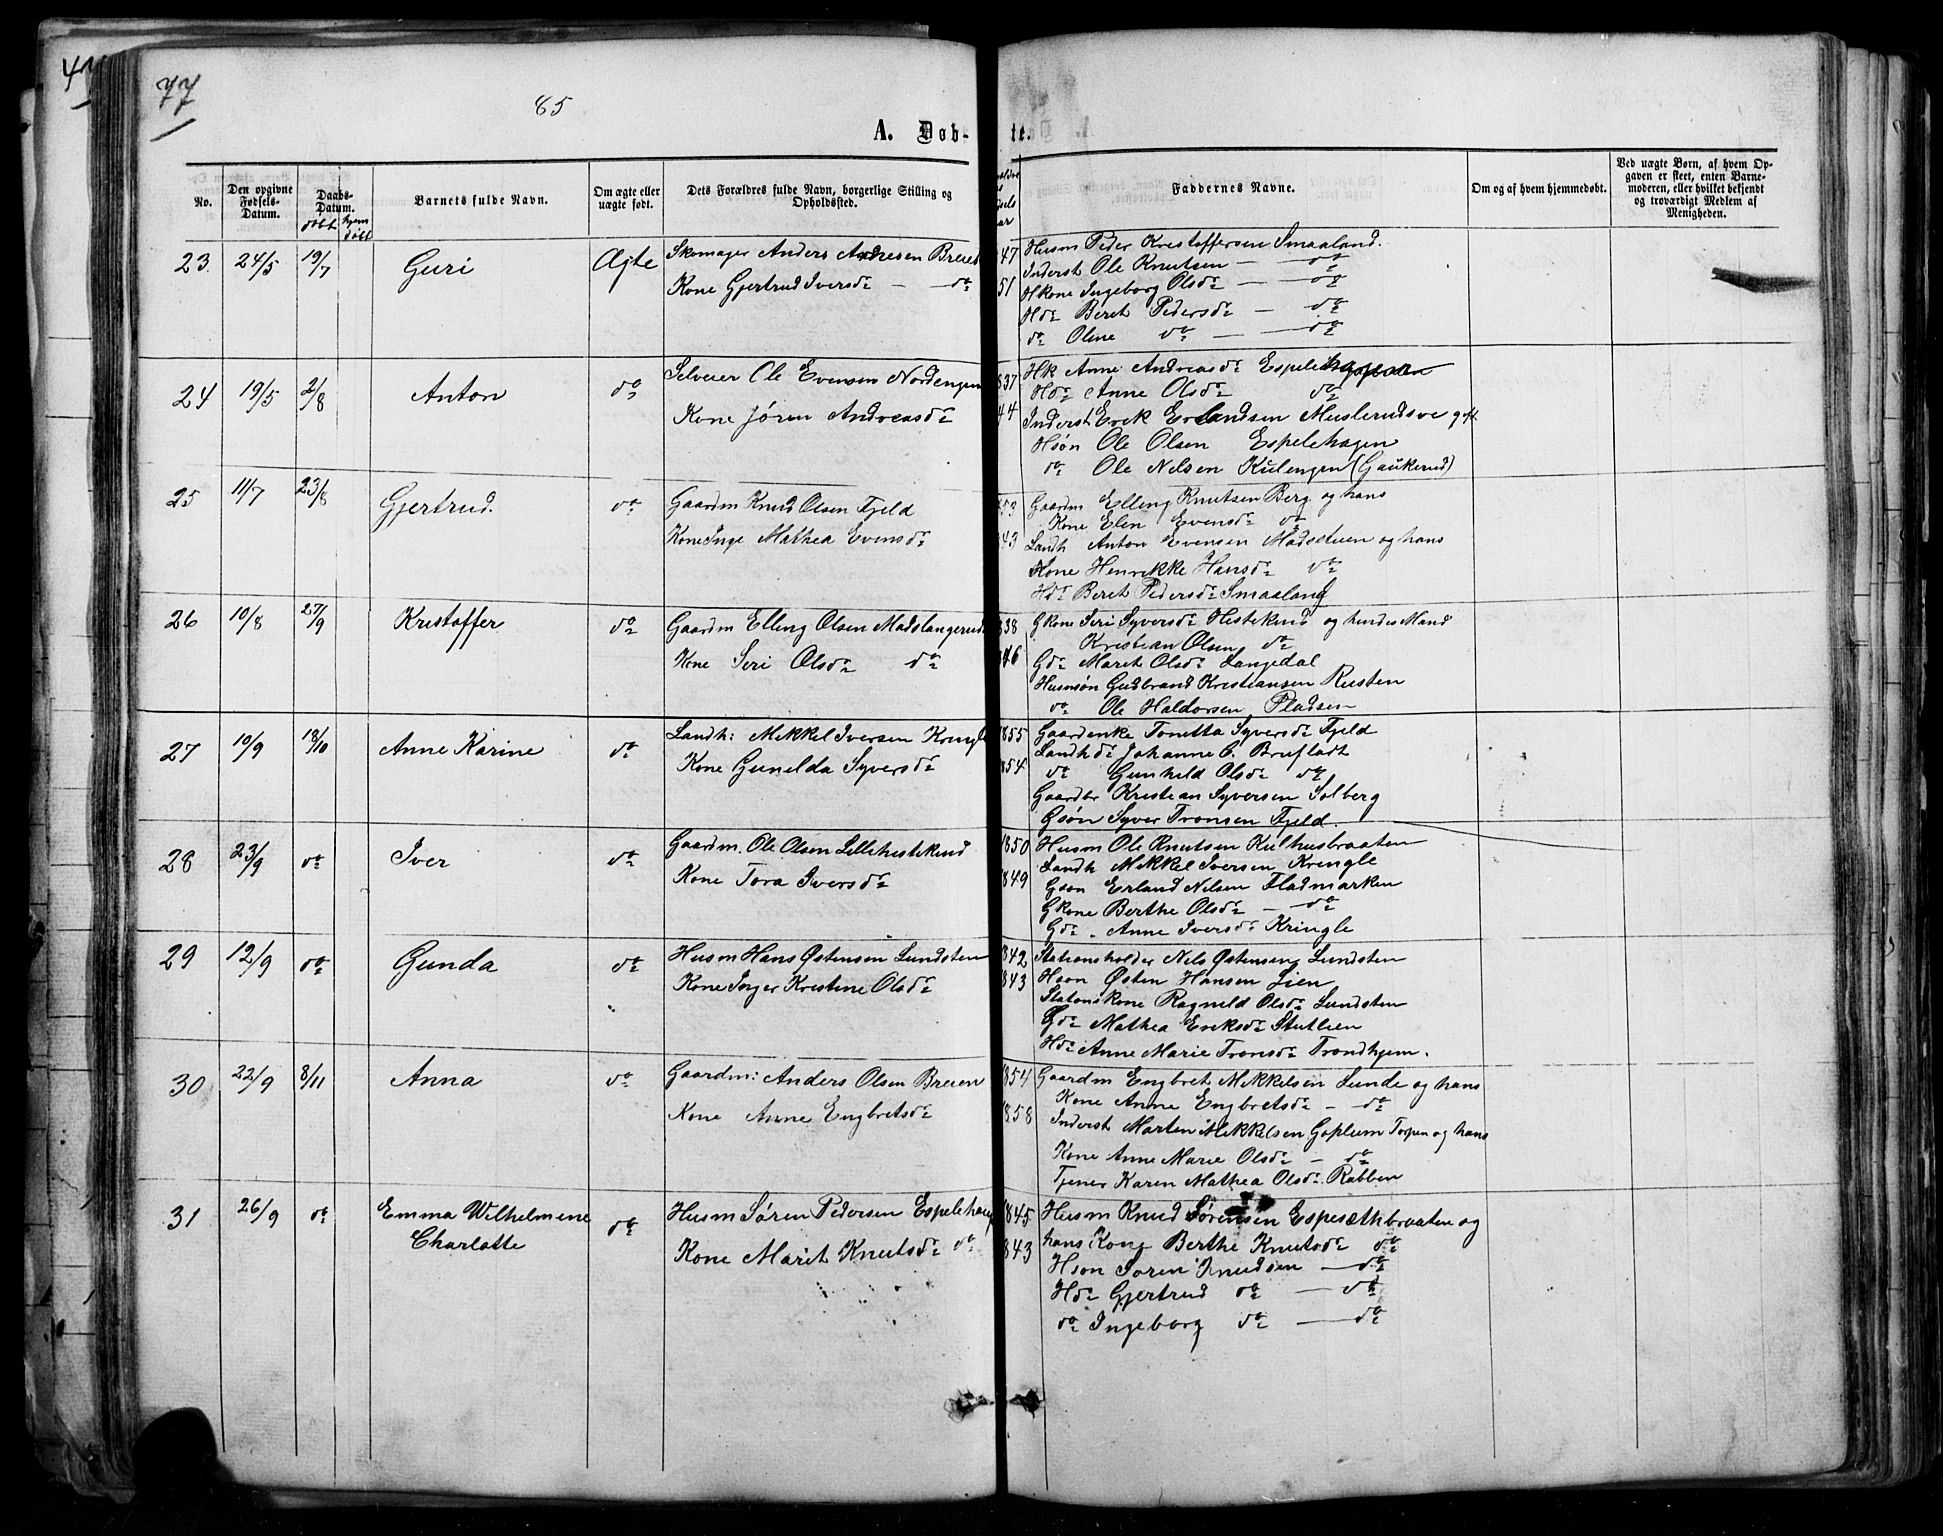 77
85
A. Døb-
te.
No.
Den opgivne Fødsels-Datum.
Daabs-Datum.
døbt
hjem døbt
Barnets fulde Navn.
Om ægte eller uægte født.
Dets Forældres fulde Navn, borgerlige Stilling og Opholdssted.
Faddernes Navne.
Om og af hvem hjemmedøbt.
Ved uægte Børn, af hvem Opgaven er skeet, enten Barnemoderen, eller hvilket bekjendt og troværdigt Medlem af Menigheden.
23. 24/5 19/7 Guri Ægte Skomager Anders Andresen Breied
Kone Gjertrud Iversdr — do
47 Husm Peder Kristoffersen Smaaland.
Inderst Ole Knutsen — do
51 Hkone Ingeborg Olsdr — do
Hdr Beret Pedersdr — do
do Oline do — do
24 19/5 2/8 Anton do Selveier Ole Evensen Nordengen
Kone Jøren Andreasdr
837 Hk Anne Andreasdr Espelihagen
Hdr Anne Olsdr do
44 Inderst Erek Erlandsen Muslerudsve gst.
Hsøn Ole Olsen Espelehagen
do Ole Nelsen Kulengen (Gaukerud)
25 11/7 23/8 Gjertrud. do Gaardm Knud Olsen Fjeld
Kone Inge Mathea Evensdr
853 Gaardm Elling Knutsen Berg og hans
Kone Elen Evensdr do
43 Landh Anton Evensen Madsstuen og hans
Kone Henrikke Hansdr do
Hdr Beret Pedersdr Smaaland
26 10/8 27/9 Kristoffer do Gaardm Elling Olsen Madslangerud
Kone Seri Olsdr do
838 Gkone Seri Syversdr Hestekind og hendes Mand
Kristian Olsen do
846 Gdr Maret Olsdr Langedal
Husmsøn Gudbrand Kristiansen Rusten
do Ole Haldorsen Pladsen
27 10/9 18/10 Anne Karine do Landh: Mekkel Iversen Kringle
Kone Gunilda Syversdr
1855 Gaardenke Tonetta Syversdr Fjeld
Landhdr Johanne C. Brufladt
1854 do Gunhild Olsdr do
Gaardbr Kristian Syversen Solberg
Gsøn Syver Tronsen Fjeld.
28 23/9 do Iver do Gaardm. Ole Olsen Lillehestekind
Kone Tora Iversdr
1850 Husm Ole Knutsen Kulhusbraaten
Landh Mekkel Iversen Kringle
1849 Gsøn Erland Nelsen Fladmarken
Gkone Berthe Olsdr — do
Gdr. Anne Iversdr Kringle
29 12/9 do Gunda do Husm Hans Østensen Lundsten
Kone Inger Kristine Olsdr
1842 Stationsholder Nels Østenseng Lundsten
1843 Hsøn Østen Hansen Lien
Stationskone Ragnild Olsdr Lundsten
Gdr Mathea Eriksdr Stutlien
Hdr Anne Marie Tronsdr Trondhjem.
30 22/9 8/11 Anna do Gaardm: Anders Olsen Breien
Kone Anne Engbretsdr
1854 Gaardm Engbret Mekkelsen Lunde og hans
Kone Anne Engbretsdr — do
1858 Inderst Marten Mekkelsen Goplum Torpen og hans
Kone Anne Marie Olsdr — do
Tjener Karen Mathea Olsdr Rabben
31 26/9 do Emma Wilhelmene do Husm Søren Pedersen Espelehaug
Charlotte
Kone Marit Knutsdr do
1845 Husm Knud Sørensen Espesæthbraaten og
hans Kone Berthe Knutsdr do
1843 Hsøn Søren Knudsen — do
Hdr Gjertrud do — do
do Ingeborg do — do